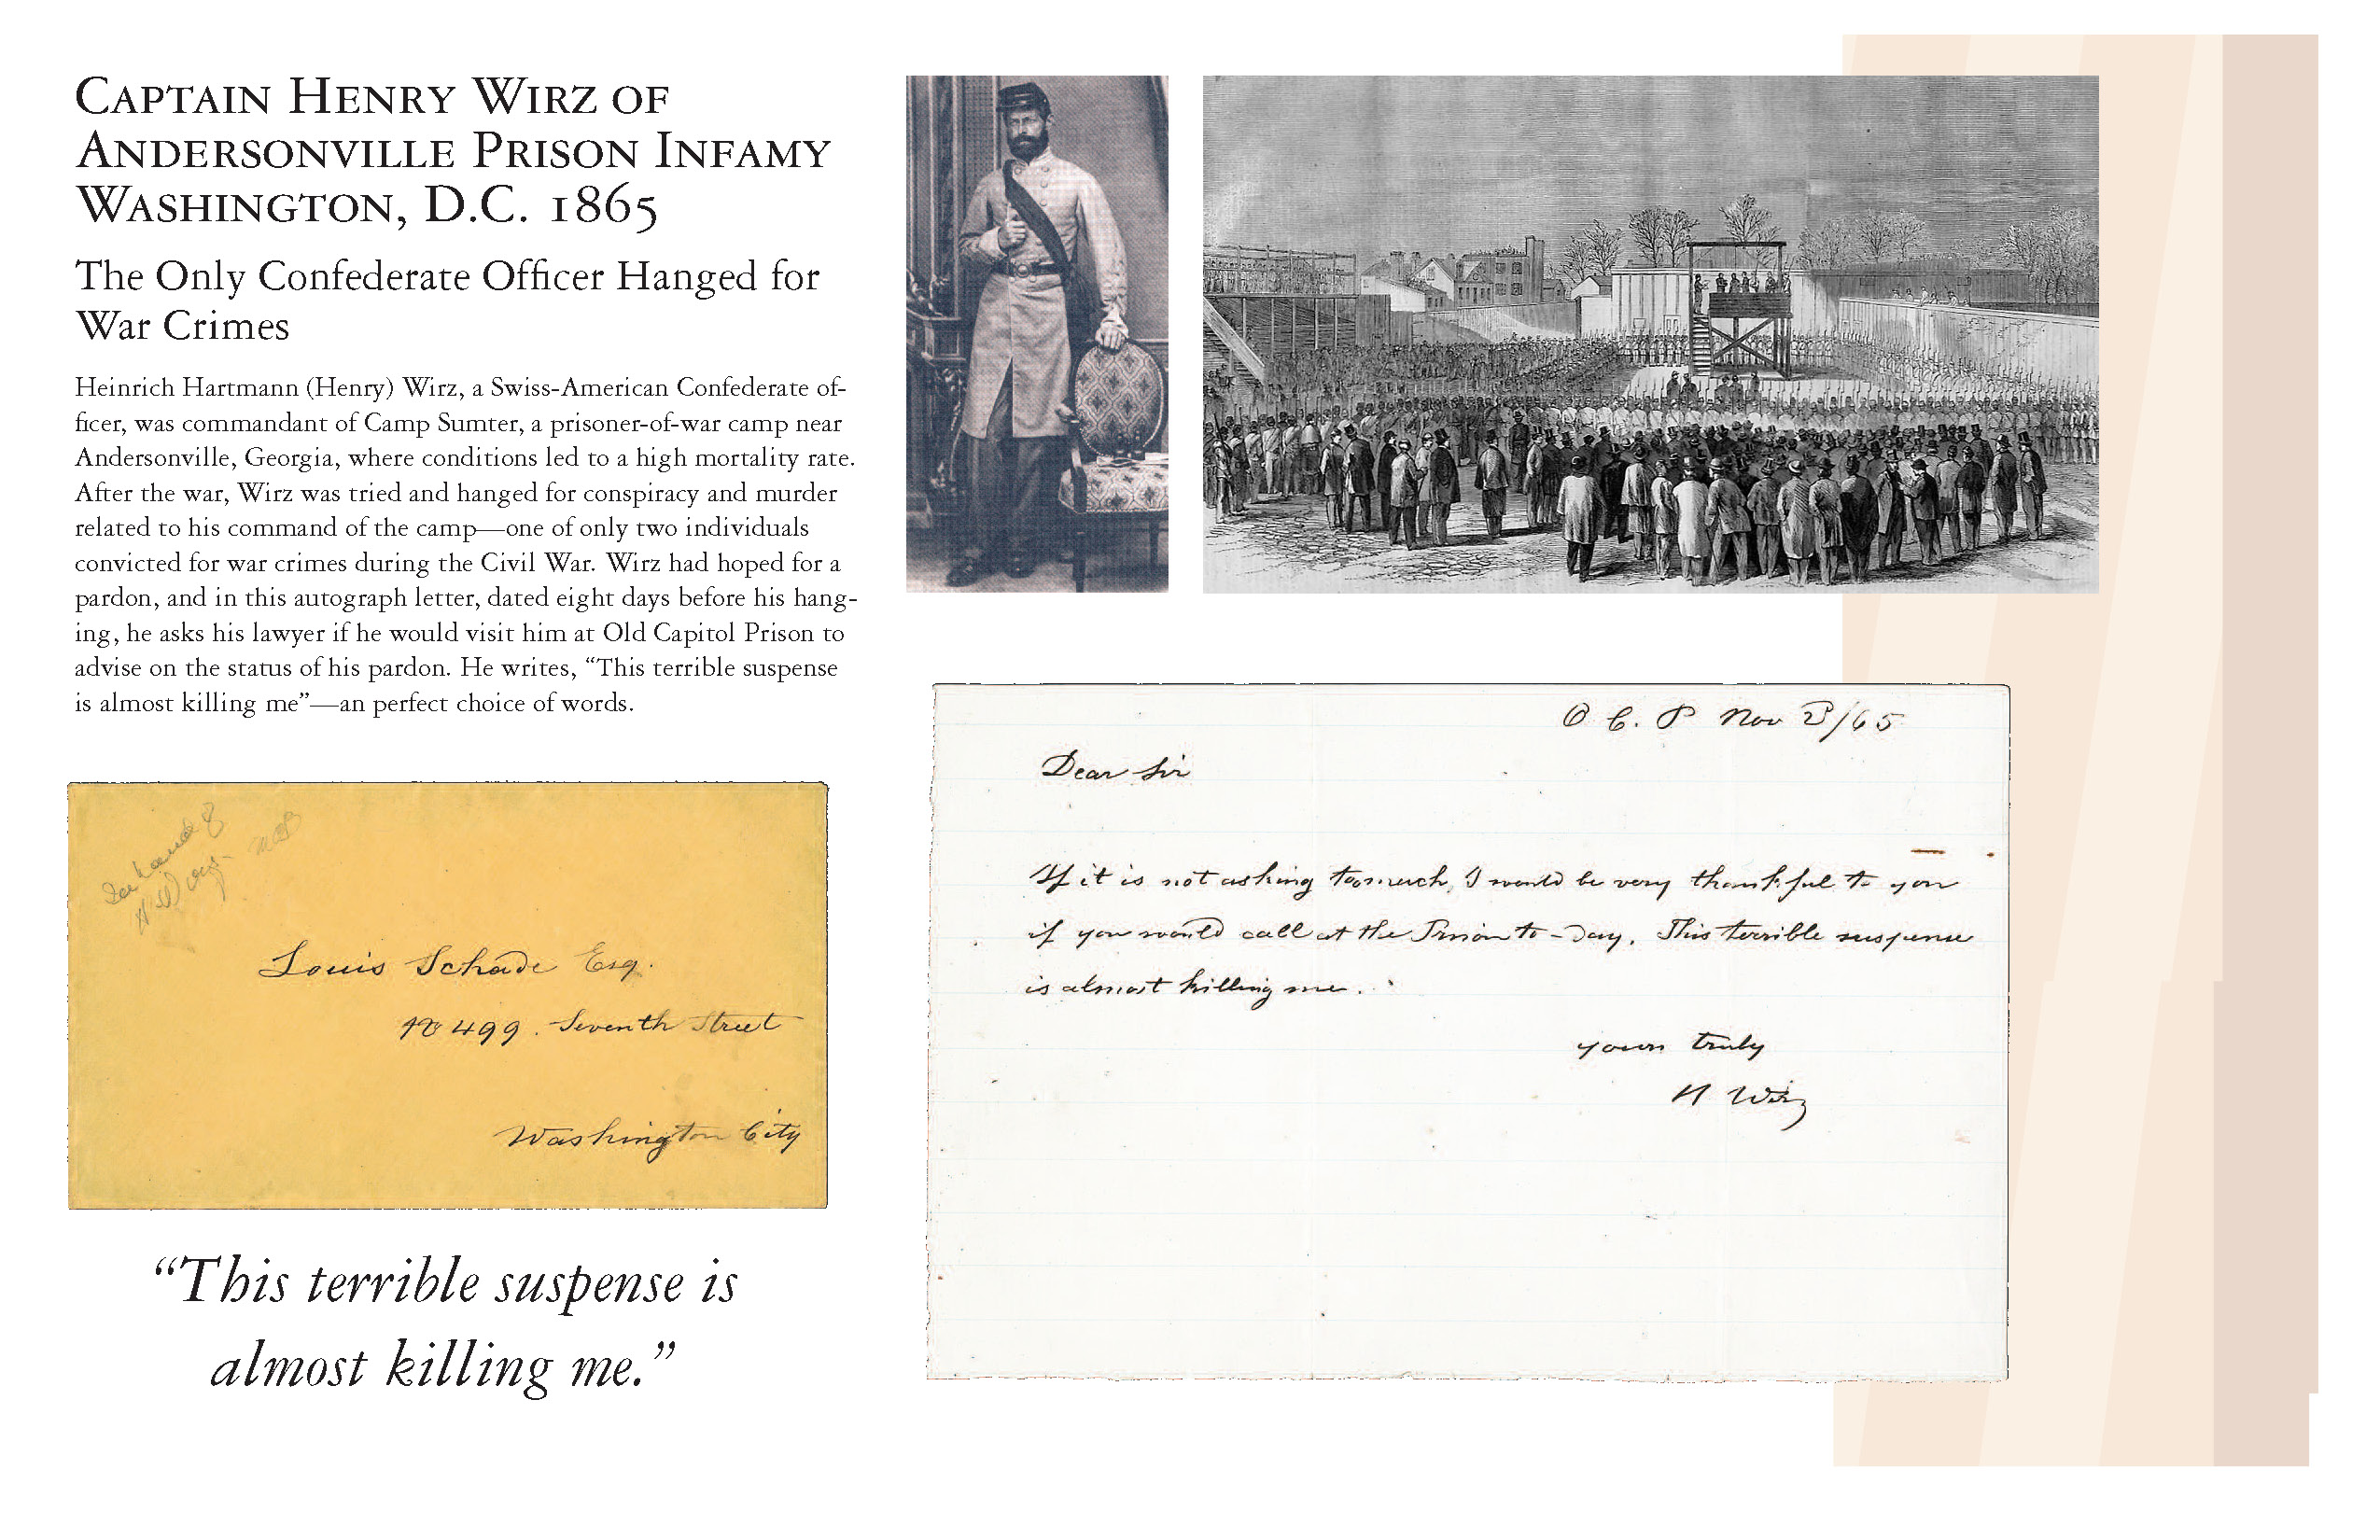 CAPTAIN HENRY WIRZ OF
ANDERSONVILLE PRISON INFAMY
WASHINGTON, D.C. 1865
The Only Confederate Officer Hanged for
War Crimes
Heinrich Hartmann (Henry) Wirz, a Swiss-American Confederate of-
ficer, was commandant of Camp Sumter, a prisoner-of-war camp near
Andersonville, Georgia, where conditions led to a high mortality rate.
After the war, Wirz was tried and hanged for conspiracy and murder
related to his command of the camp—one of only two individuals
convicted for war crimes during the Civil War. Wirz had hoped for a
pardon, and in this autograph letter, dated eight days before his hang-
ing, he asks his lawyer if he would visit him at Old Capitol Prison to
advise on the status of his pardon. He writes, “This terrible suspense
is almost killing me”—an perfect choice of words.
Louis Schade Esq.
No 499. Seventh Street
Washington City
“This terrible suspense is
almost killing me.”
O C. P Nov /65
Dear Sir
If it is not asking too much, I would be very thankful to you
if you would call at the Prison to-day. This terrible suspense
is almost killing me.
yours truly
H Wirz